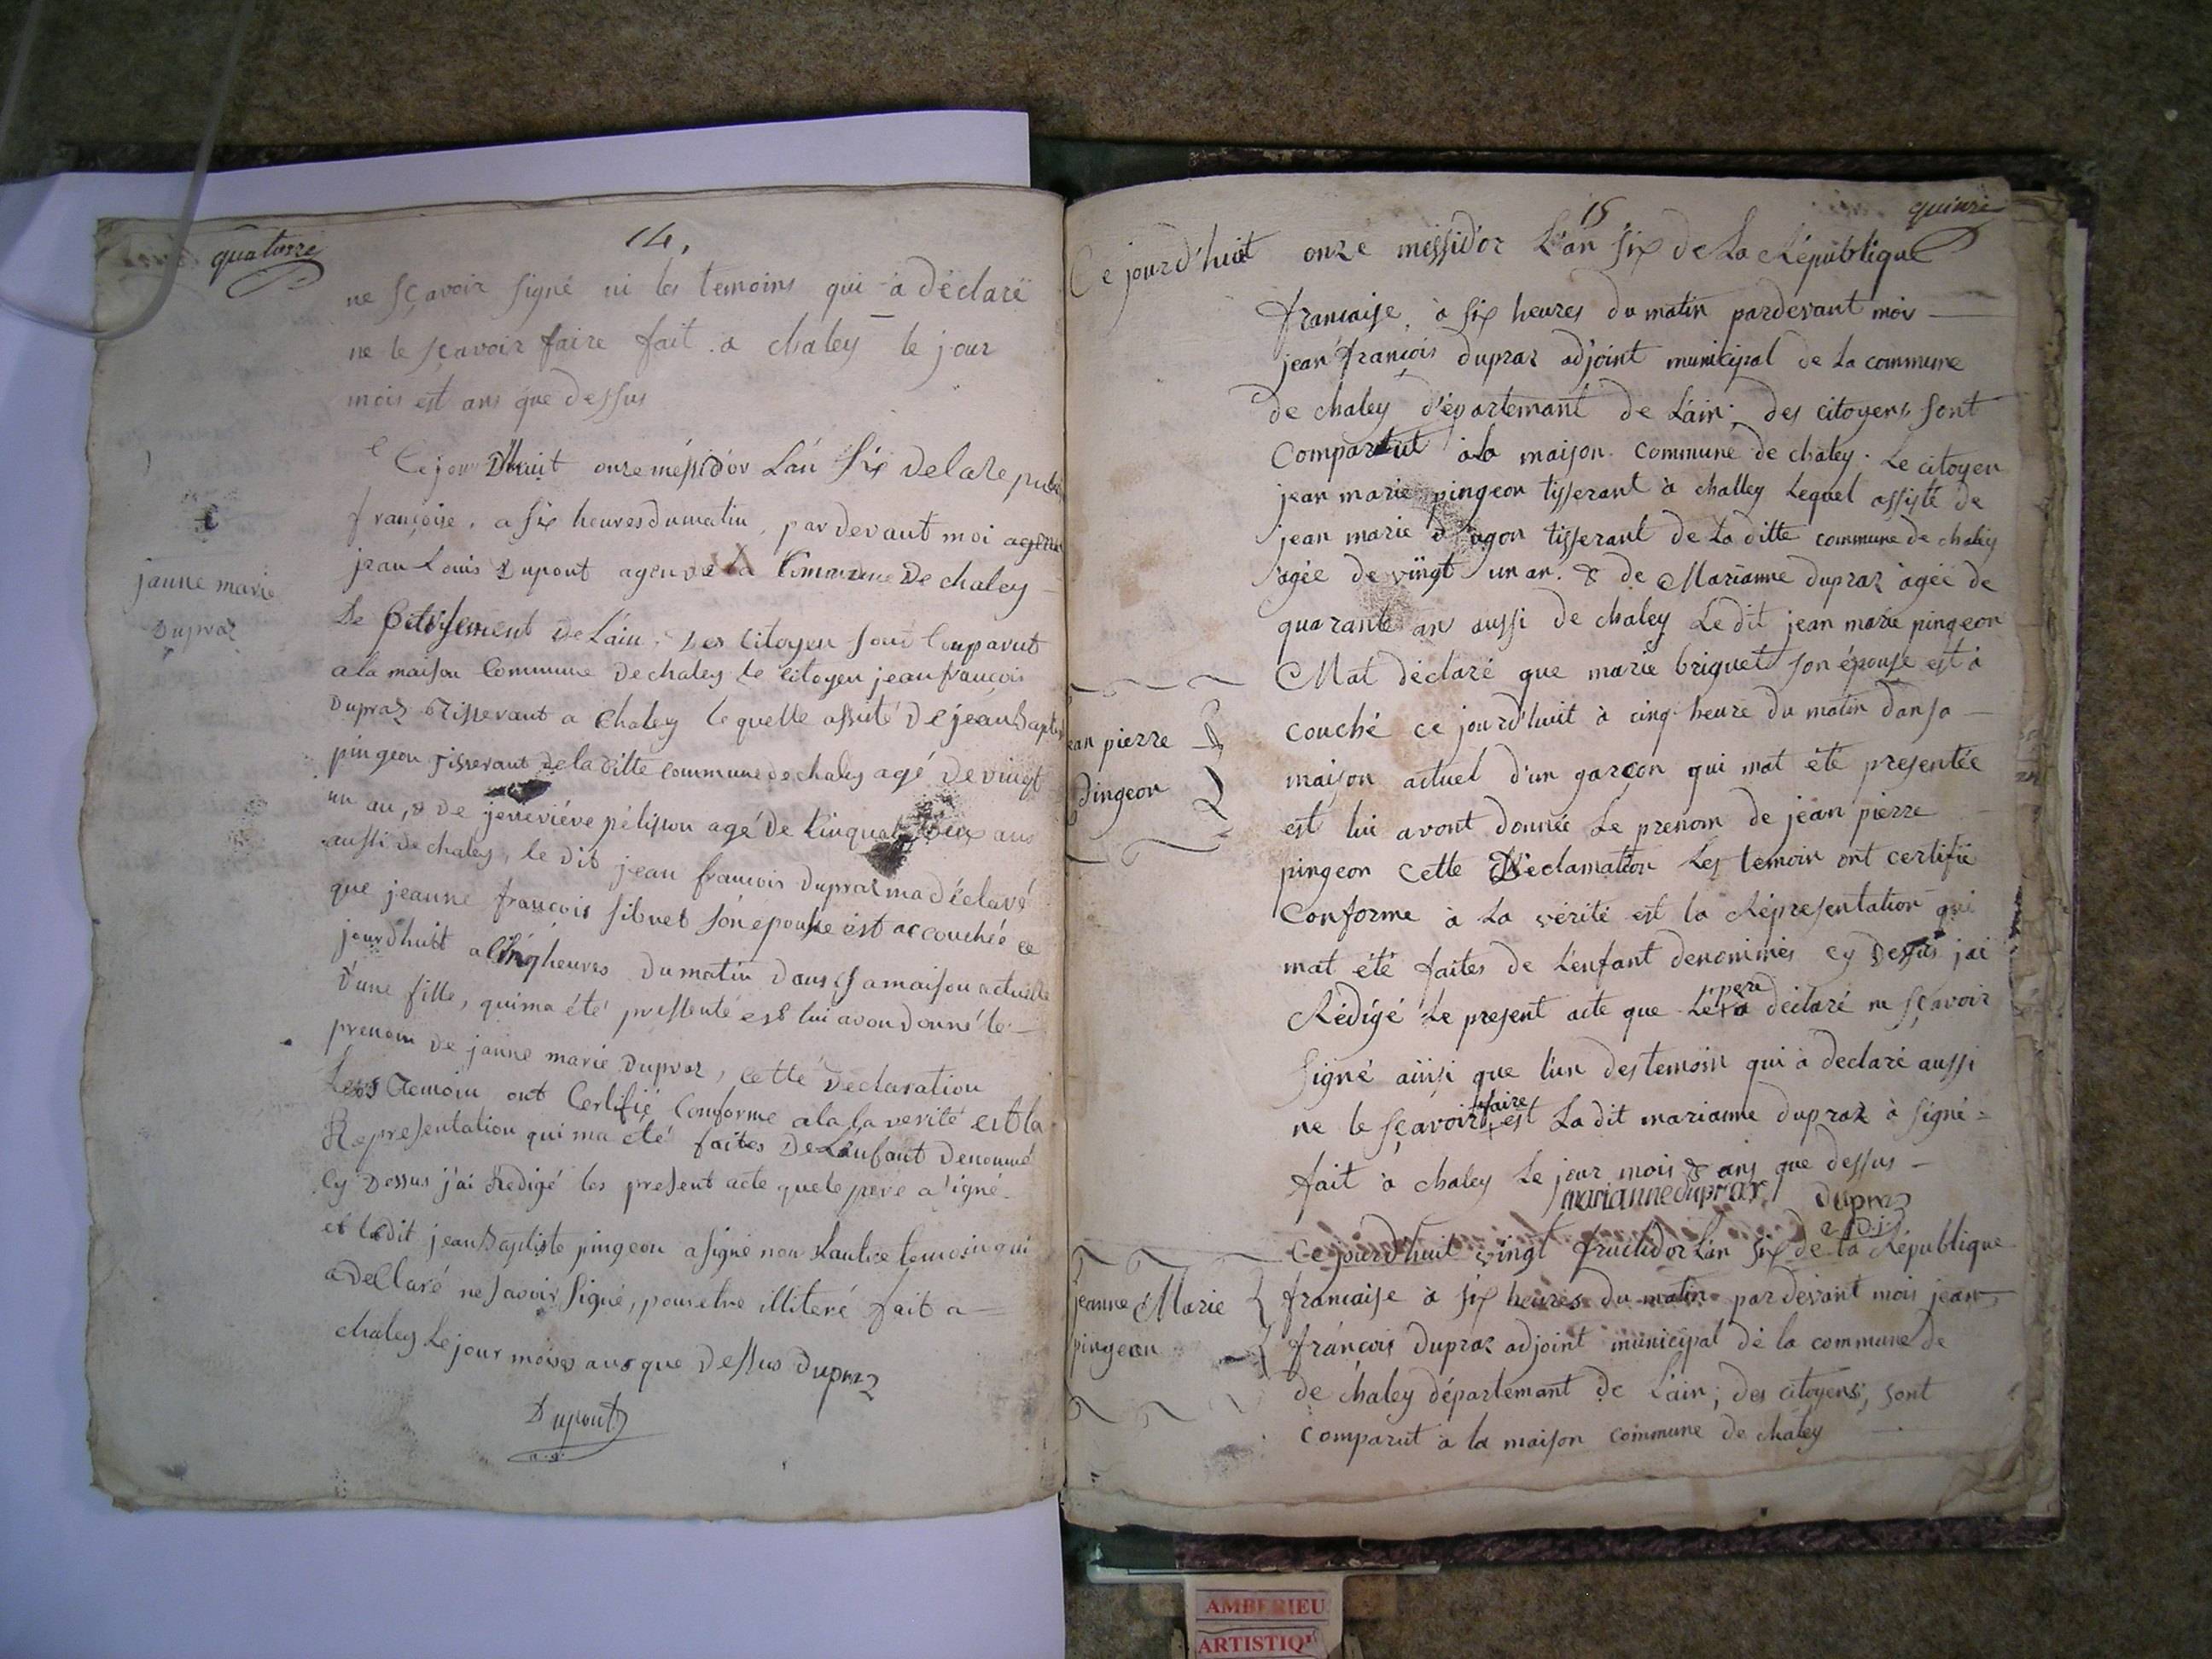 quatorze
14,
ne sçavoir signé ni les temoins qui a déclaré
ne le sçavoir faire fait a chaley le jour
mois est ans que dessus
Ce jour D'huit onze méssidor L'an Six de la republi
françoise. a six heures du matin, par devant moi agent
jean Louis Dupont agen de la Commune De chaley
De L'ain. Des Citoyen sont Comparut
a la maison Commune De chaley le Citoyen jean françois
Dupraz Tisserant a Chaley le quelle assité De jean Baptis
pingeon Tisserant de la ditte commune de chaley agé De vingt
un an, & De jeneviéve pélisson agé De Cinquante Deux ans
aussi De chaley, le dit jean francois Dupraz ma déclaré
que jeanne françois sibuet son epouse est accouchée ce
jourdhuit a Cinq heures Du matin Dans sa maison actuelle
D'une fille, qui ma été presenté est lui avon donné le
prenom De janne marie Dupraz, Cette Declaration
Les Temoin ont Certifié Conforme a la la verité est la
Representation qui ma été faites De L'enfant Denommé
Cy Dessus j'ai Redigé les present acte que le pere a signé
et le dit jean Baptiste pingeon a signé non L'autre temoin qui
a declaré ne savoir signé, pour etre illiteré fait a
chaley Le jour mois ans que Dessus Dupraz
Dupont
janne marie
Dupraz
15
quinze
Ce jourd'huit onze messidor L'an six de La République
francaise, à six heures du matin pardevant moi
jean françois dupraz adjoint municipal de La commune
de chaley d'épartemant de L'ain; des citoyens sont
Comparut à la maison. Commune de chaley. Le citoyen
jean marie pingeon tisserant à challey Lequel assisté de
jean marie tisserant de La ditte commune de chaley
agée de vingt un an. & de Marianne dupraz agée de
quarante an aussi de chaley Le dit jean marie pingeon
Mat déclaré que marie briguet son épouse est à
couché ce jourd'huit à cinq heure du matin dan sa
maison actuel d'un garçon qui mat été presentée
est lui avont donnée Le prenom de jean pierre
pingeon Cette Déclamation Les temoin ont certifié
Conforme à La vérité est la Répresentation qui
mat été faites de L'enfant denommés cy Dessus jai
Rédigé Le present acte que Le pere a déclaré ne sçavoir
signé ainsi que l'un des temoin qui à declaré aussi
ne le sçavoir faire est La dit marianne dupraz à signé =
fait à chaley Le jour mois & ans que dessus
marianne dupraz Dupraz
adj
jean pierre
pingeon
Ce jourdhuit vingt fructidor L'an six de la République
francaise à six heures du matin par devant mois jean
françois dupraz adjoint municipal de la commune de
de chaley département de L'ain; des citoyens, sont
comparut à la maison commune de chaley
jeanne Marie
pingeon
AMBERIEU
ARTISTIQ